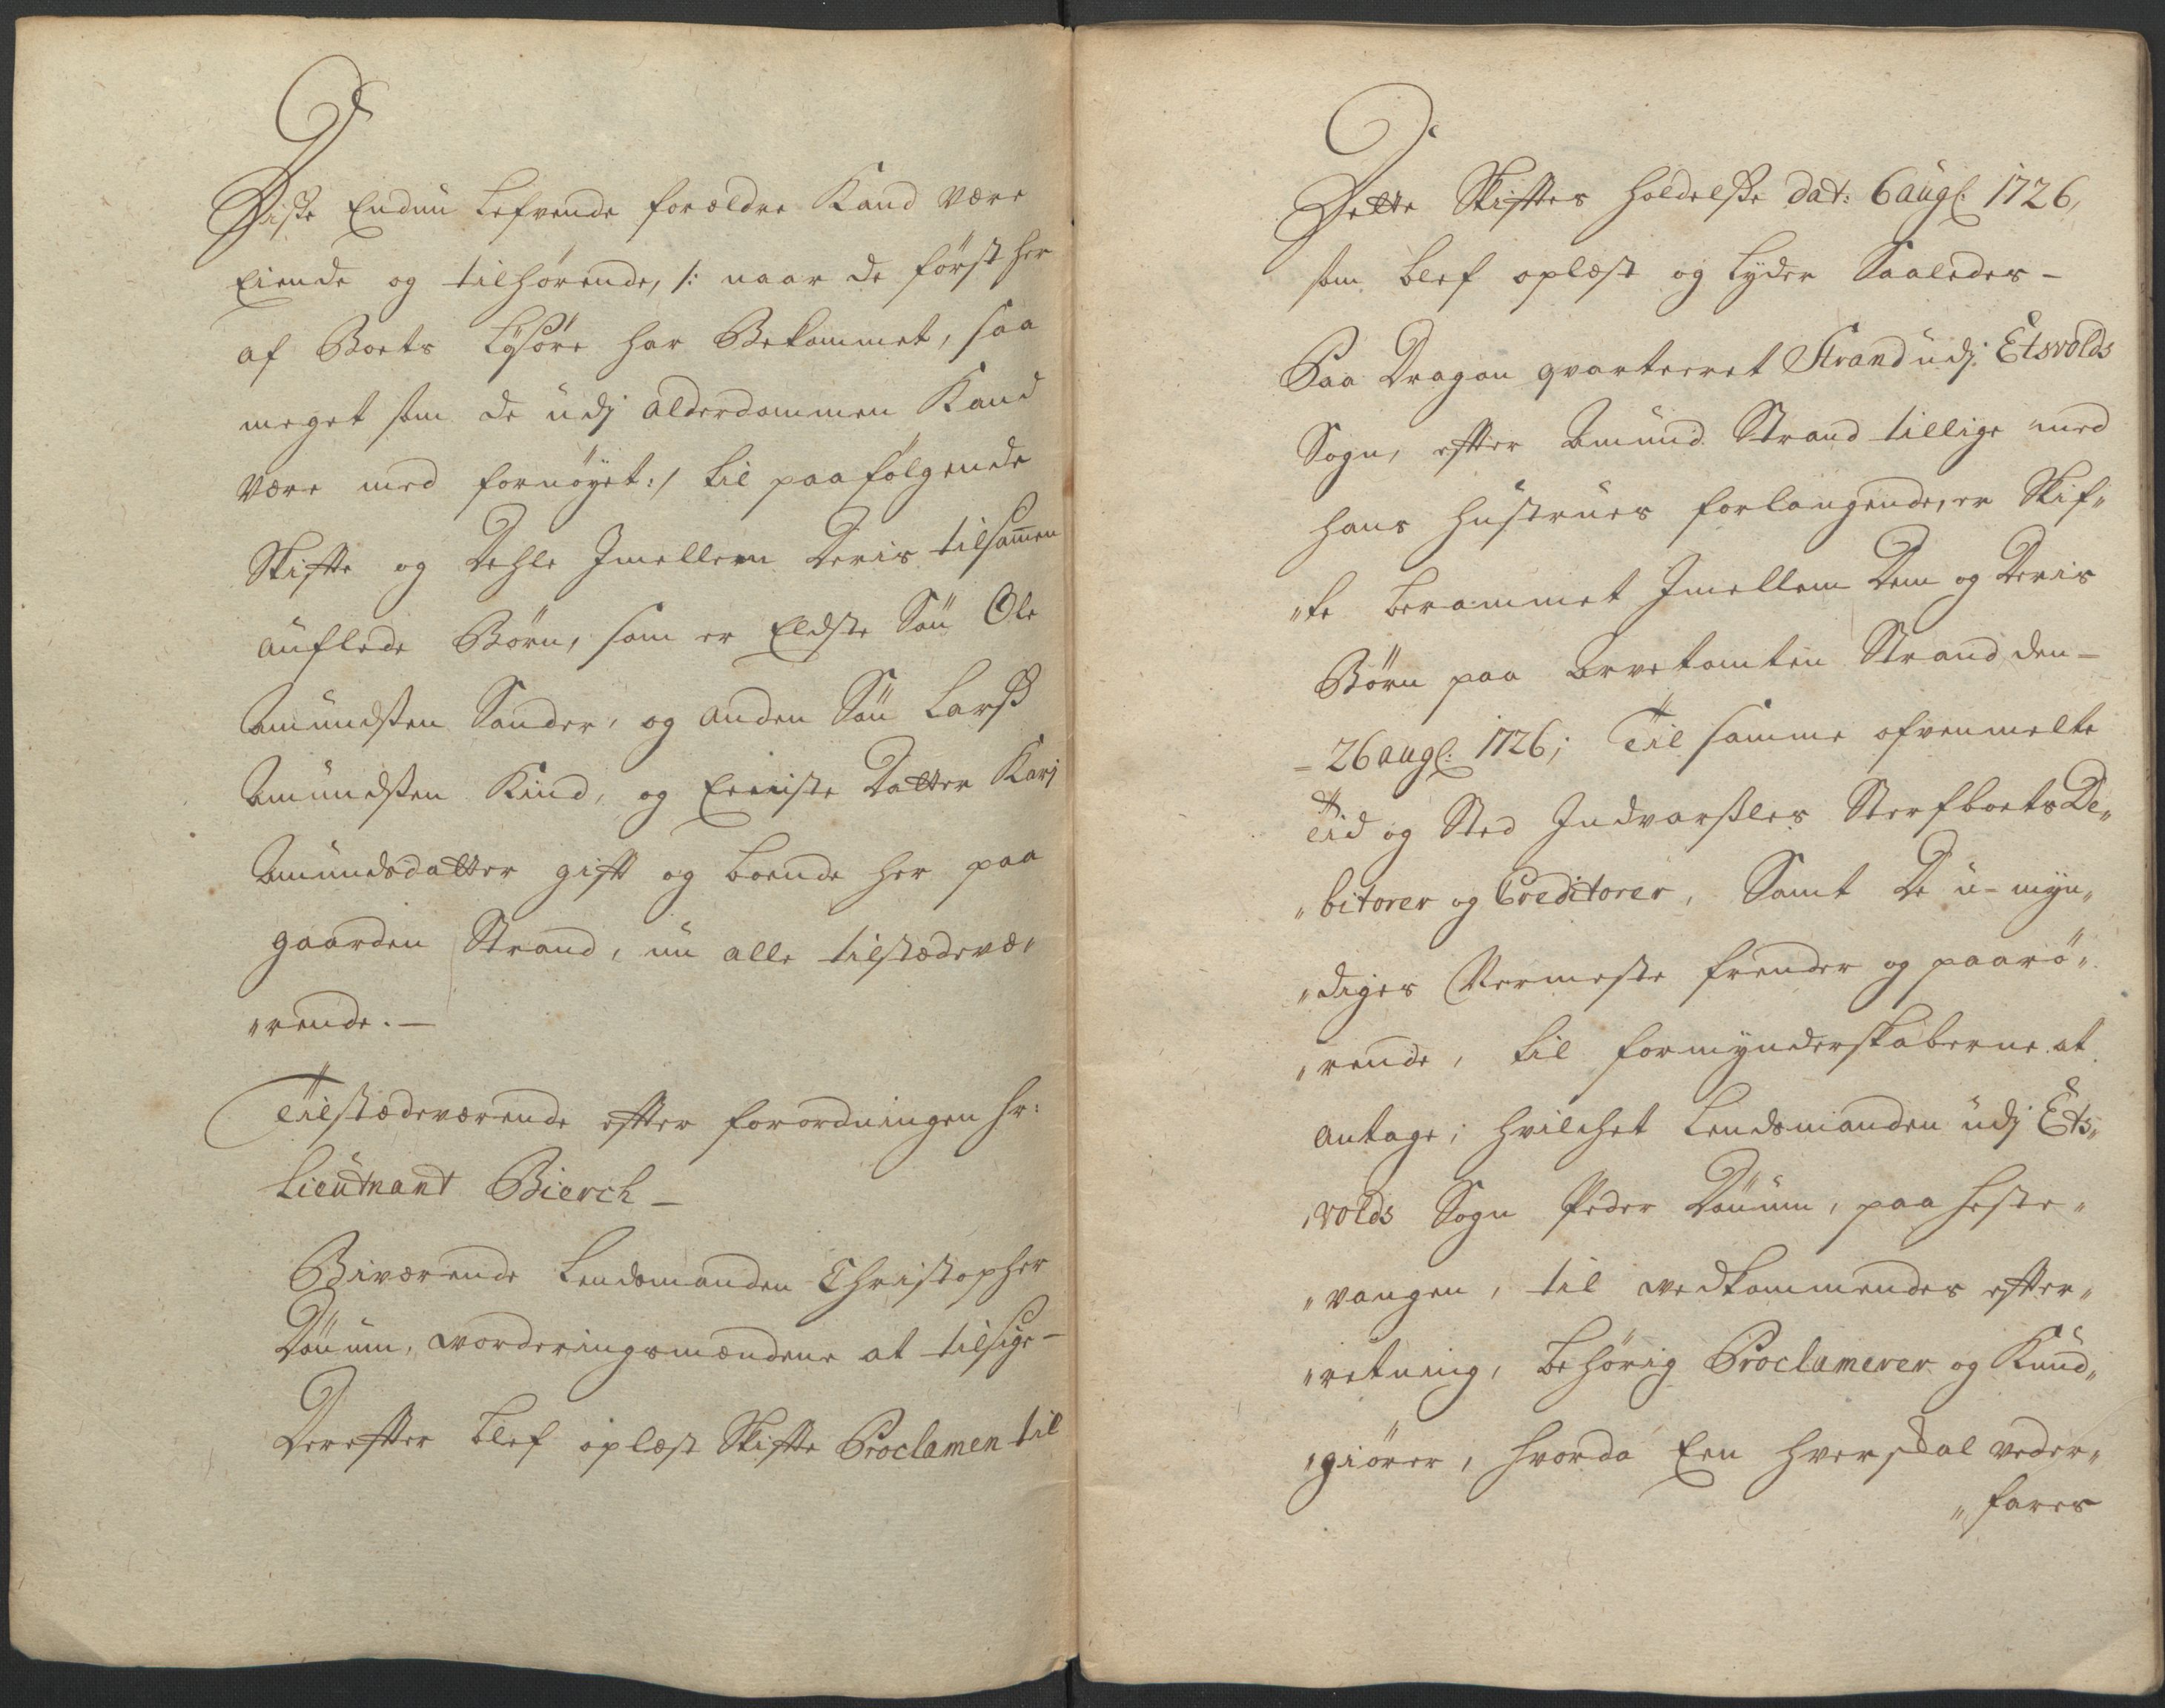 Diste Endnu Lefvende forældre Kand være
Eiende og tilhørende, /: naar de først her
af Boets Løsøre har Bekommet, saa
meget som de udj alderdommen Kand
være med fornøyet :/ til paafølgende
Skifte og Dehle Jmellem Deris tilsam̄en
auflede Børn, som er Eldste Søn Ole
Amundsen Sander, og anden Søn Larss
Amundsen Kind, og Eeniste Datter Karj
Amundsdatter gift og boende her paa
gaarden Strand, nu alle tilstædevæ„
„rende. —
Tilstædeværende efter forordningen Hr:
Lieutnant Bierch —
Biværende Lendsmanden Christopher
Døuum, vorderingsmændene at tilsige —
Derefter blef oplæst Skifte Proclamen til
Dette Skiftes holdelsse dat: 6 aug: 1726,
som blef oplæst og lyder Saaledes —
Paa Dragon qvarteeret Strand udj Etsvolds
Sogn, efter Amund Strand tillige med
hans hustrues forlangende, er Skif„
„te berammet Jmellem Dem og Deris
Børn paa Arvetomten Strand, den —
= 26 aug: 1726; Til samme ofvenmelte
Tid og Sted Indvarssles Sterfboets De„
„bitorer og Creditorer, Samt De u-myn„
„diges Nermeste frender og paarø„
„rende, til formynderskaberne at
antage; hvilchet Lendsmanden udj Ets„
„volds Sogn Peder Døuum, paa Heste„
„vangen, til vedkommendes efter„
„retning, behørig Proclamerer og Kund„
„giører, hvorda Een hver skal veder„
„fares